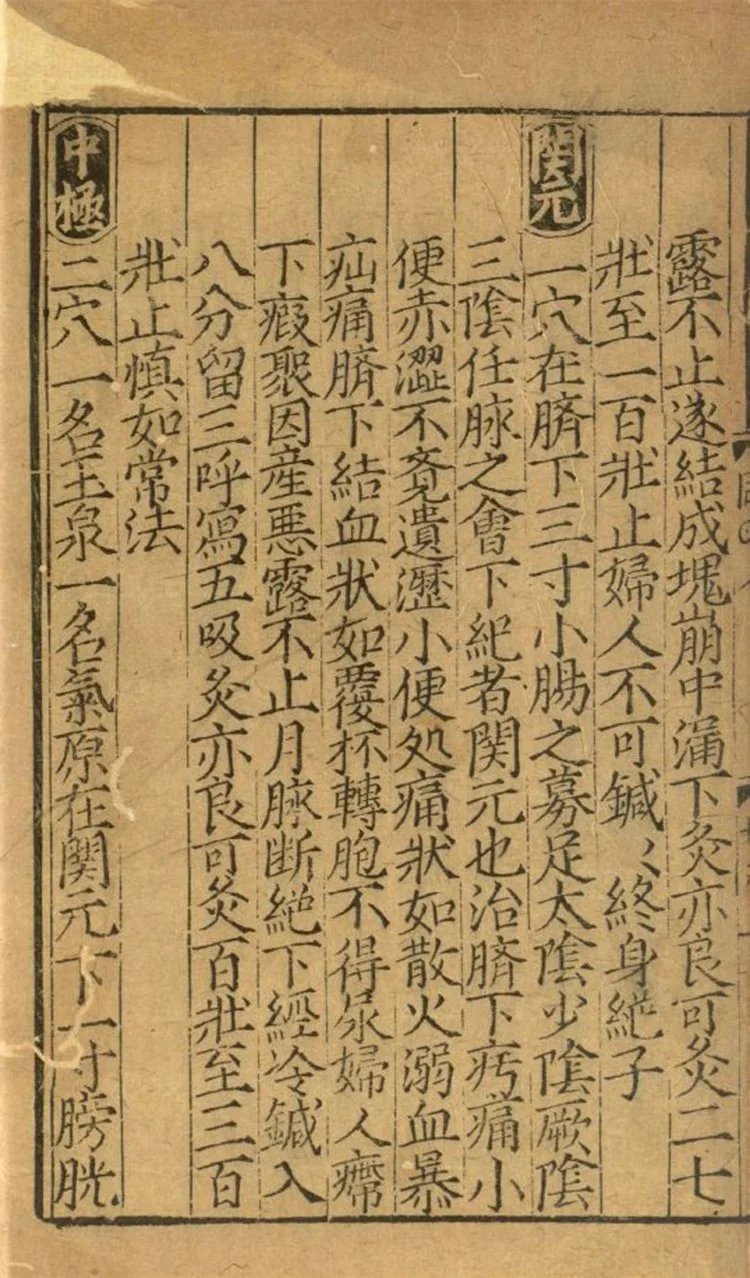 露不止遂結成塊崩中漏下灸亦良可灸二七
壯至一百壯止婦人不可鍼〻終身絶子
関元一穴在臍下三寸小腸之募足太陰少陰厥陰
三陰任脉之會下紀者関元也治臍下疞痛小
便赤澀不覺遺瀝小便処痛狀如散火溺血暴
疝痛臍下結血狀如覆杯轉胞不得尿婦人㿃
下瘕聚因産悪露不止月脉断絶下經冷鍼入
八分留三呼寫五吸灸亦良可灸百壯至三百
壯止慎如常法
中極二穴一名玉泉一名氣原在関元下一寸膀胱